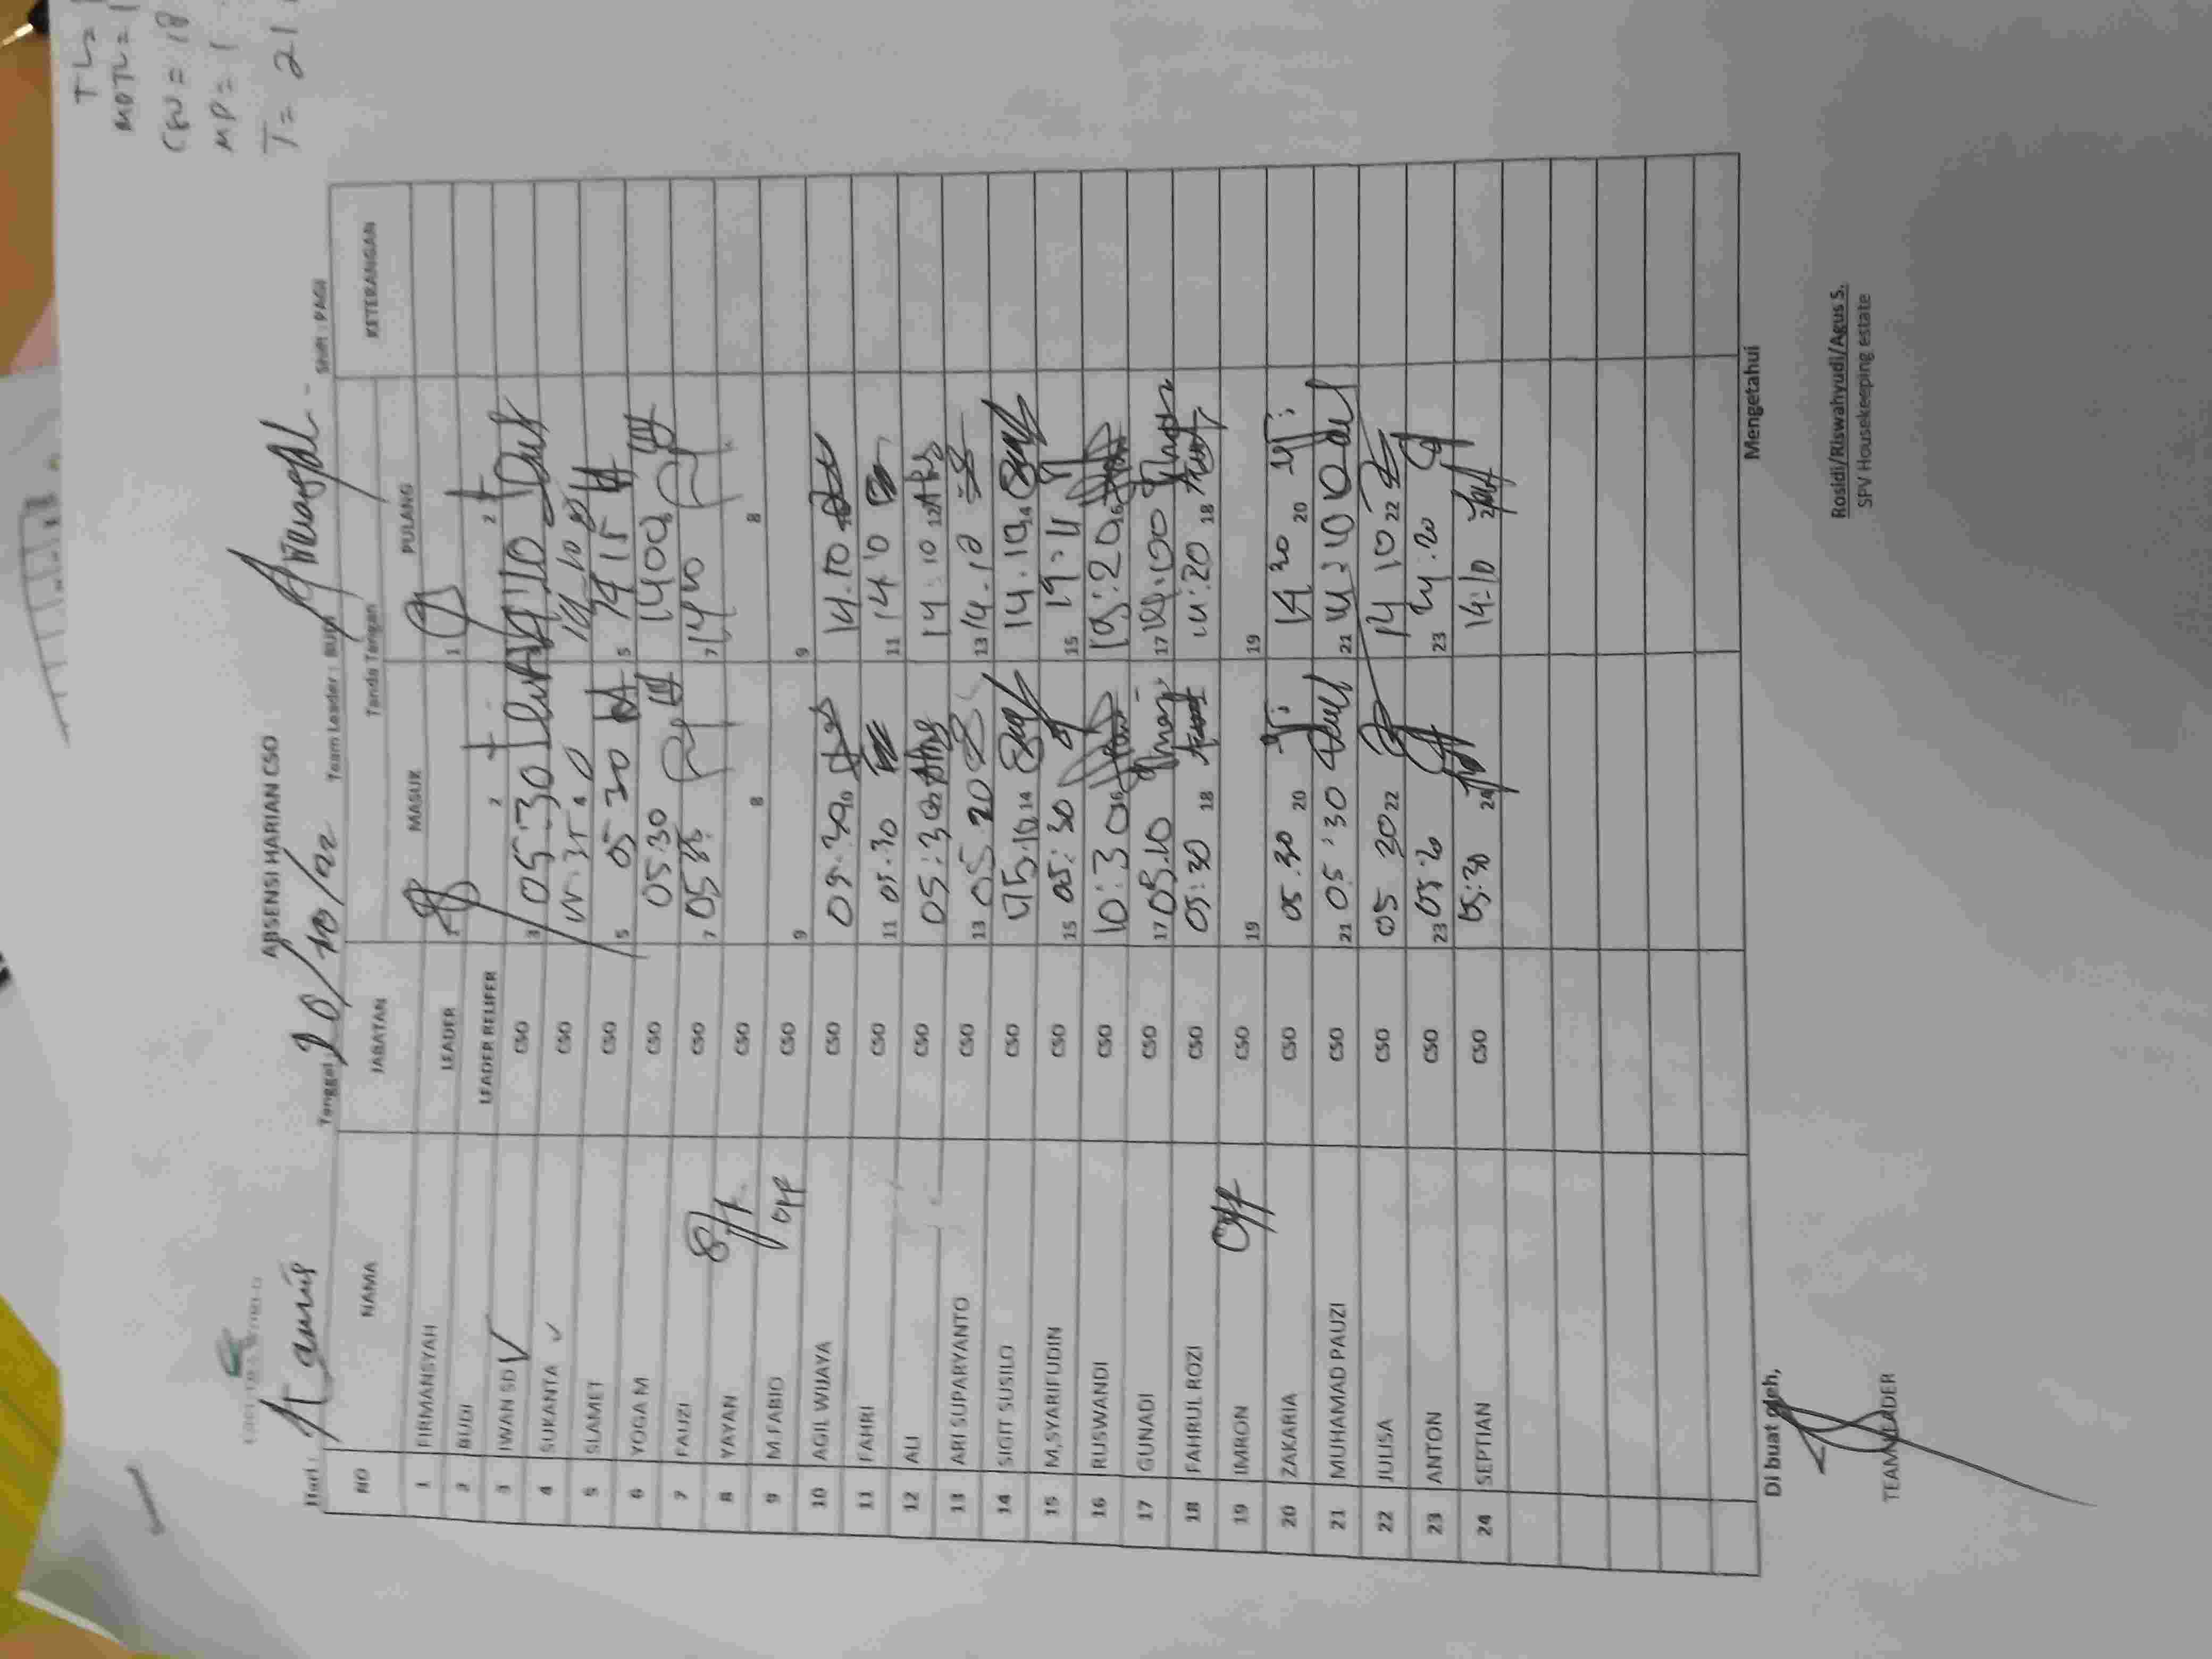 TL =
MDTL =
CSO = 18
MP = 1
T = 21
ABSENSI HARIAN CSO
Hari : Kamis Tanggal 20/10/22 Team Leader : BUDI Shift : PAGI
NO NAMA JABATAN Tanda Tangan KETERANGAN
MASUK PULANG
1 FIRMANSYAH LEADER 1 1
2 BUDI LEADER RELIFER 2 2
3 IWAN SD V CSO 3 05:30 14:10
4 SUKANTA ✓ CSO 4 14.10
5 SLAMET CSO 5 05 30 5 14 15
6 YOGA M CSO 05.30 1400
7 FAUZI CSO 7 05 7 14
8 YAYAN Off CSO 8 8
9 M.FABIO OFF CSO 9 9
10 AGIL WIJAYA CSO 05.30 14.10
11 FAHRI CSO 11 05.30 11 14 10
12 ALI CSO 05:30 14:10 12
13 ARI SUPARYANTO CSO 13 05.20 13 14.10
14 SIGIT SUSILO CSO 05.10 14 14.10 14
15 M,SYARIFUDIN CSO 15 05:30 15
16 RUSWANDI CSO 10:30 16 19:20 16
17 GUNADI CSO 17 05.10 17
18 FAHRUL ROZI CSO 05:30 18 14:20 18
19 IMRON Off CSO 19 19
20 ZAKARIA CSO 05.30 20 14 20 20
21 MUHAMAD PAUZI CSO 21 05:30 21 14:10
22 JULISA CSO 05 30 22 14 10 22
23 ANTON CSO 23 05 20 23 14.20
24 SEPTIAN CSO 05:30 24 14:10 24
Di buat oleh, Mengetahui
TEAM LEADER Rosidi/Riswahyudi/Agus S.
SPV Housekeeping estate